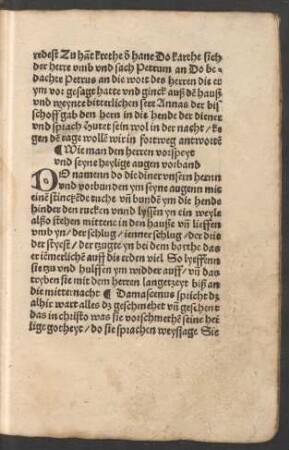 redest Zu hāt krethe d̄ hane Do karthe sich
der herre vmb vnd sach Petrum an Do be-
dachte Petrus an die wort des herren die er
ym vor gesaget hatte vnd ginck auß dē hauß
vnd weynte bitterlichen sere Annas der bi-
schoff gab den hern in die hende der diener
vnd sprach Hutet sein wol in der nacht / ke
gen dē tage wollē wir im fortweg antworte
¶ Wie man den herren vorspeyt
vnd seyne heylige augen vorband
DO namenn do die diner vnsern herrn
vnd vorbunden ym seyne augenn mit
einē stinckēdē tuche vn̄ bundē ym die hende
hinder den rucken vnnd lyssen yn ein weyle
alßo stehen mittene in den hauße vn̄ lieffen
vmb yn / der schlug / ienner schlug / der
der styeß / der tzugte yn bei dem barthe das
er iēmerlichē auff die erden viel So lyeffenn
sie zu vnd hulffen ym widder auff / vn̄ das
tryben sie mit dem herren langetzeyt biß an
die mitternacht ¶ Damascenus spricht dz
alhir wart alles dz geschmehet vn̄ geschent
das in christo was sie vorschmethē seine hei-
lige gotheyt / do sie sprachen weyssage Sie